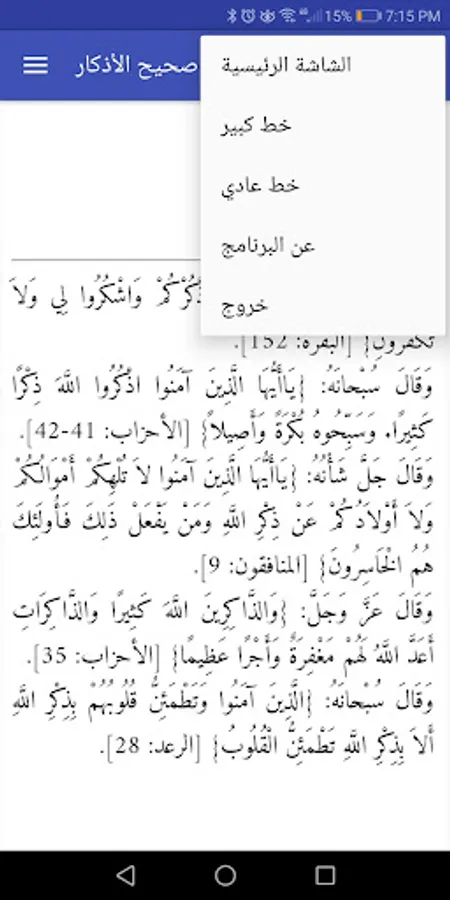 15% 7:15 PM
صحيح الأذكار
الشاشة الرئيسية
خط كبير
خط عادي
عن البرنامج
خروج
وَاشْكُرُوا لِي وَلاَ
تَكْفُرُونِ} [البقرة: 152].
وَقَالَ سُبْحَانَهُ: {يَاأَيُّهَا الَّذِينَ آمَنُوا اذْكُرُوا اللَّهَ ذِكْرًا
كَثِيرًا. وَسَبِّحُوهُ بُكْرَةً وَأَصِيلاً} [الأحزاب: 41-42].
وَقَالَ جَلَّ شَأْنُهُ: {يَاأَيُّهَا الَّذِينَ آمَنُوا لاَ تُلْهِكُمْ أَمْوَالُكُمْ
وَلاَ أَوْلاَدُكُمْ عَنْ ذِكْرِ اللَّهِ وَمَنْ يَفْعَلْ ذَلِكَ فَأُولَئِكَ
هُمُ الْخَاسِرُونَ} [المنافقون: 9].
وَقَالَ عَزَّ وَجَلَّ: {وَالذَّاكِرِينَ اللَّهَ كَثِيرًا وَالذَّاكِرَاتِ
أَعَدَّ اللَّهُ لَهُمْ مَغْفِرَةً وَأَجْرًا عَظِيمًا} [الأحزاب: 35].
وَقَالَ سُبْحَانَهُ: {الَّذِينَ آمَنُوا وَتَطْمَئِنُّ قُلُوبُهُمْ بِذِكْرِ اللَّهِ
أَلاَ بِذِكْرِ اللَّهِ تَطْمَئِنُّ الْقُلُوبُ} [الرعد: 28].